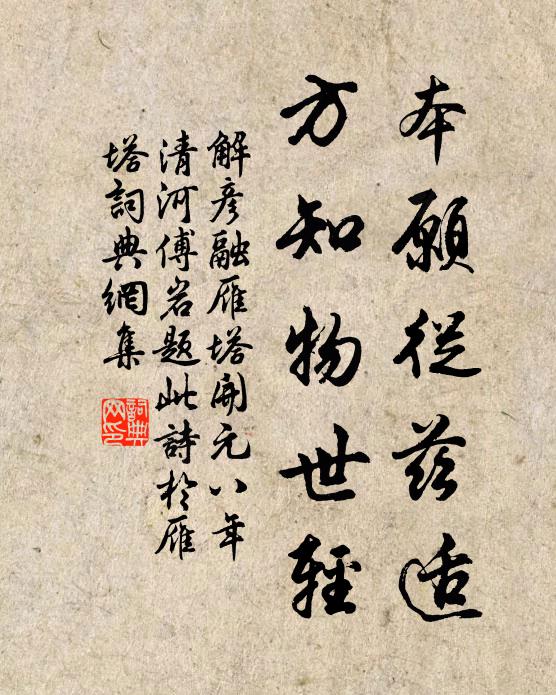 本願從茲适
方知物世輕
解彥融雁塔開元八年
清河傅岩題此詩於雁
塔詞典網集
詞典网印